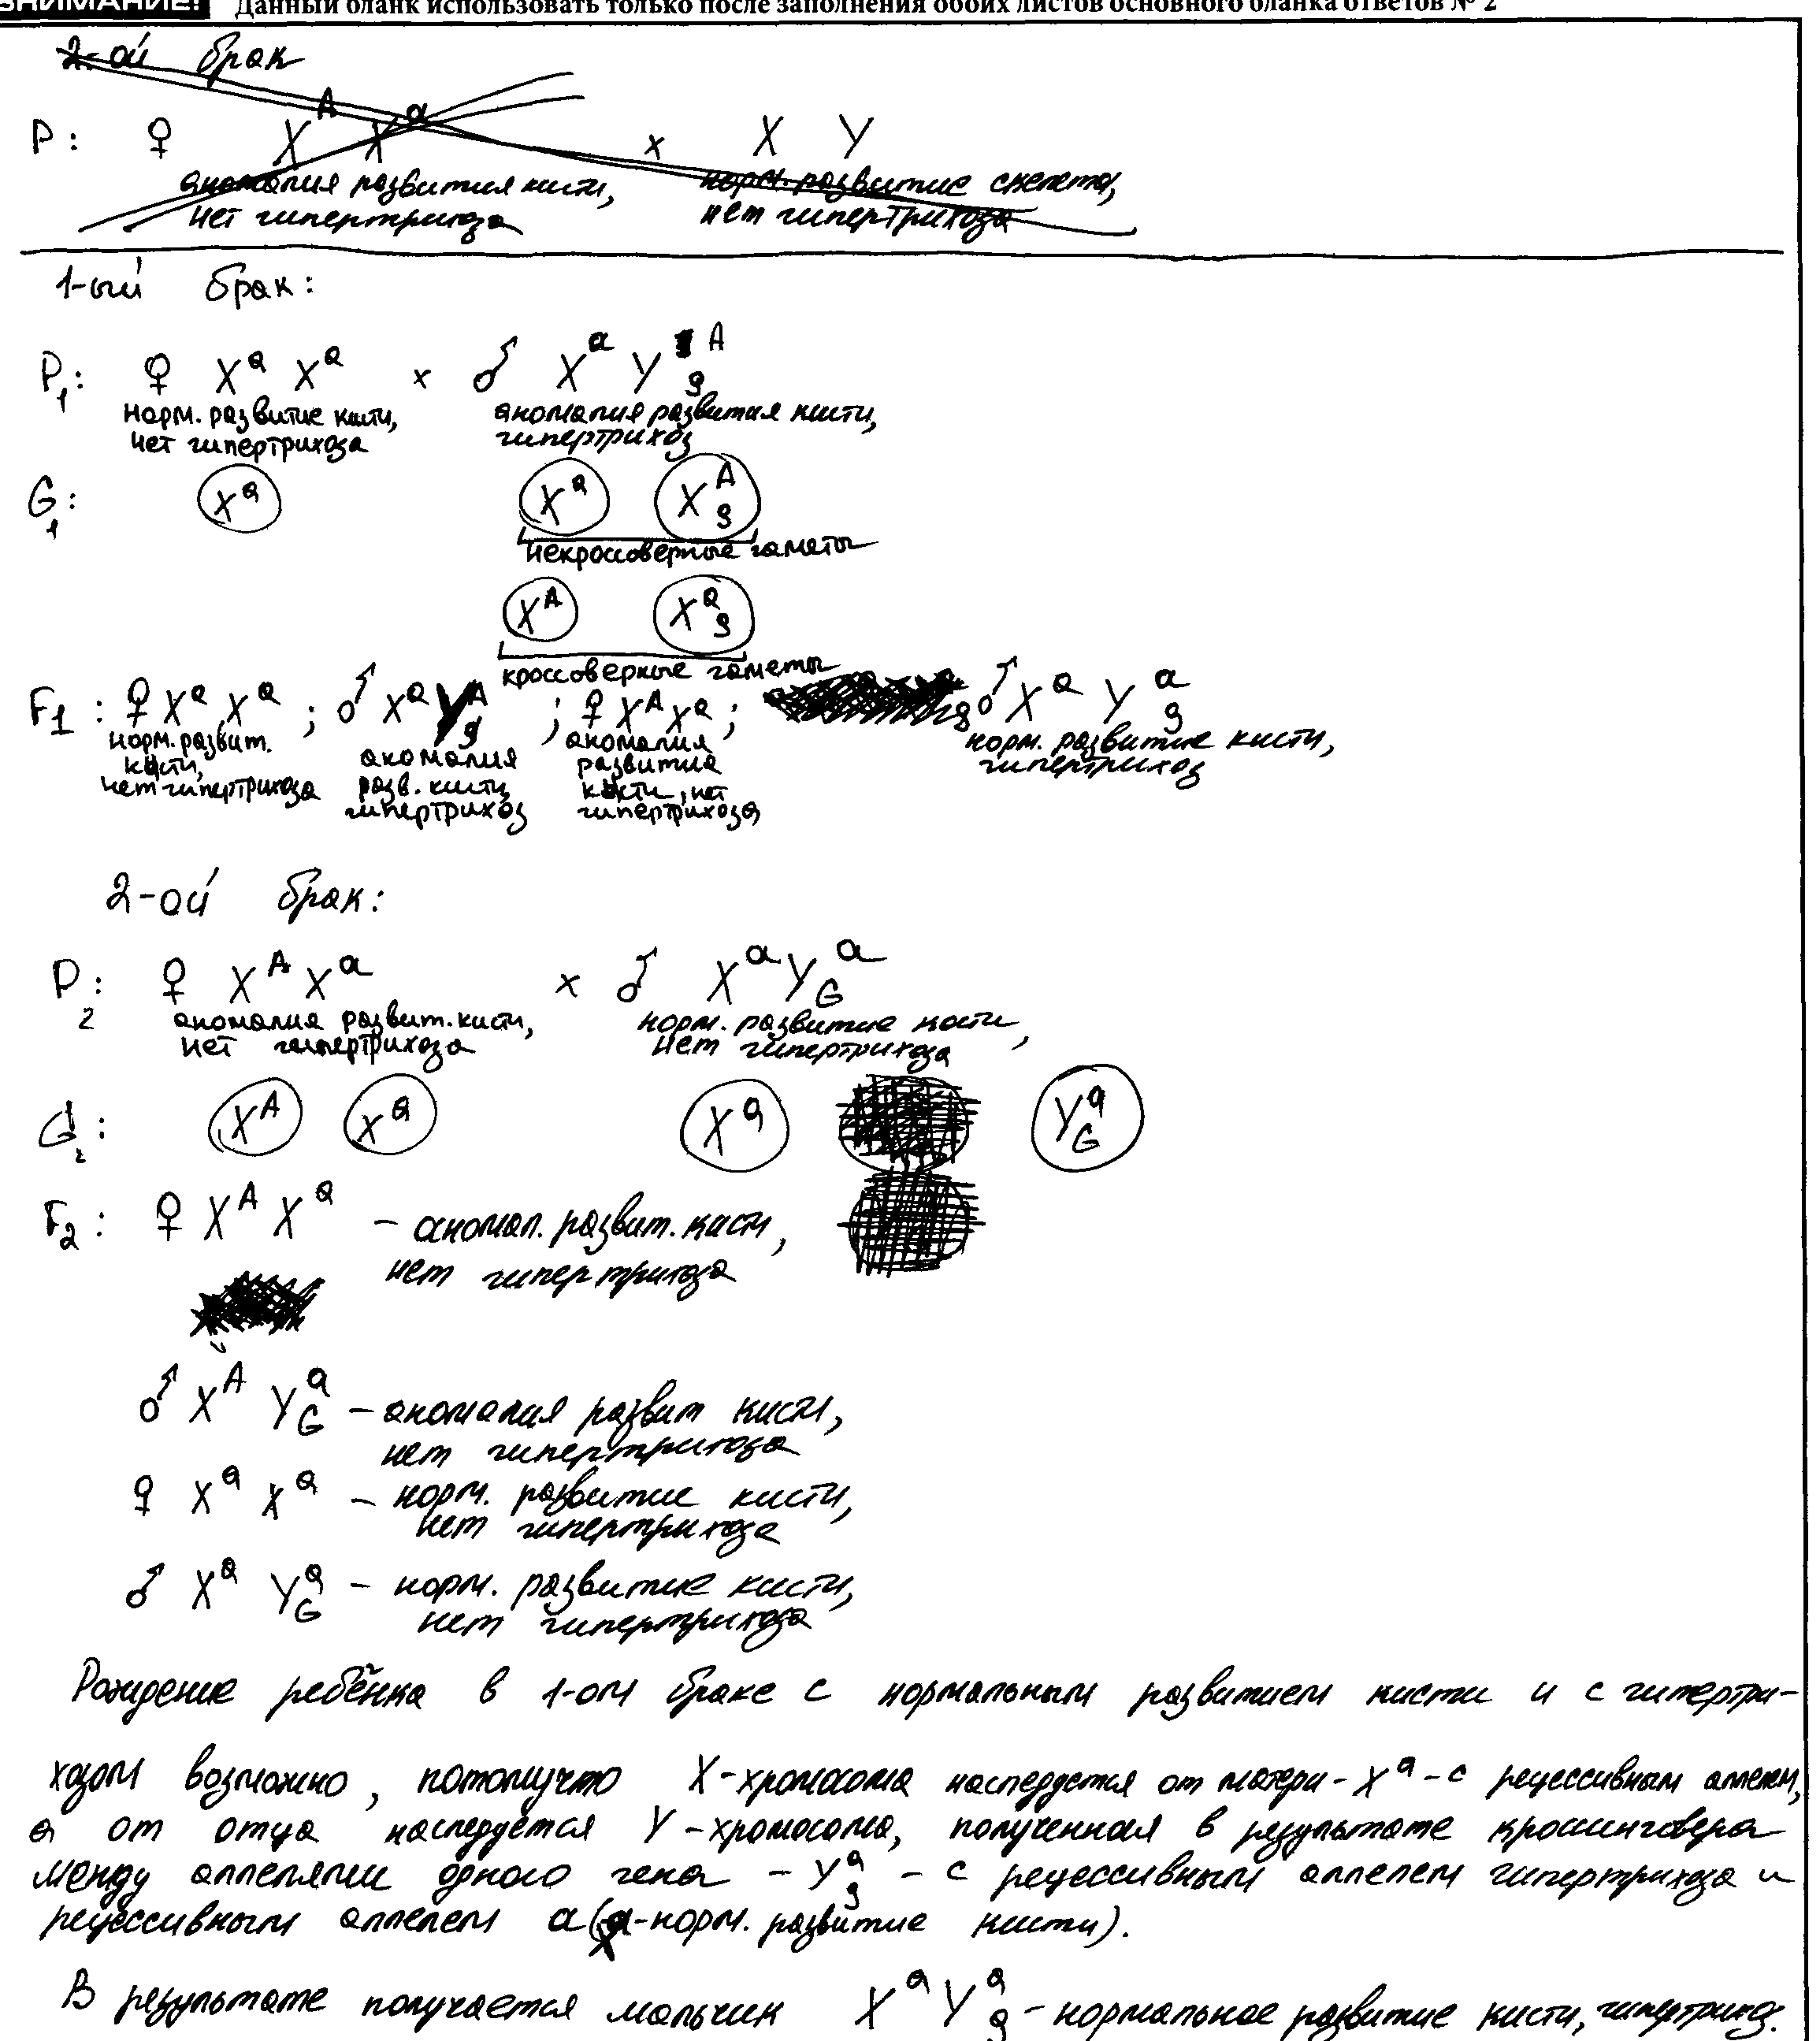 ВНИМАНИЕ! Данный бланк использовать только после заполнения обоих листов основного бланка ответов № 2
2-ой брак
P: ♀ X^A X^a × X Y
аномалия развития кисти, норм. развитие скелета,
нет гипертрихоза нет гипертрихоза
1-ый брак:
P₁: ♀ X^a X^a × ♂ X^a Y_g^A
норм. развитие кисти, аномалия развития кисти,
нет гипертрихоза гипертрихоз
G₁: X^a X^a X_g^A
некроссоверные гаметы
X^A X_g^a
кроссоверные гаметы
F1: ♀ X^a X^a ; ♂ X^a Y_g^A ; ♀ X^A X^a ; ♂ X^a Y_g^a
норм. развит. кисти, нет гипертрихоза
аномалия разв. кисти, гипертрихоз
аномалия развития кисти, нет гипертрихоза
норм. развитие кисти, гипертрихоз
2-ой брак:
P₂: ♀ X^A X^a × ♂ X^a Y_G^a
аномалия развит. кисти, норм. развитие кости,
нет гипертрихоза нет гипертрихоза
G₂: X^A X^a X^a Y_G^a
F₂: ♀ X^A X^a – аномал. развит. кисти,
нет гипертрихоза
♂ X^A Y_G^a – аномалия развит кисти,
нет гипертрихоза
♀ X^a X^a – норм. развитие кисти,
нет гипертрихоза
♂ X^a Y_G^a – норм. развитие кисти,
нет гипертрихоза
Рождение ребёнка в 1-ом браке с нормальным развитием кисти и с гипертри-
хозом возможно, потомучто X-хромосома наследуется от матери - X^a - с рецессивным аллелем,
а от отца наследуется Y-хромосома, полученная в результате кроссинговера
между аллелями одного гена – Y_g^a – с рецессивным аллелем гипертрихоза и
рецессивным аллелем a (a-норм. развитие кисти).
В результате получается мальчик X^a Y_g^a - нормальное развитие кисти, гипертрихоз.